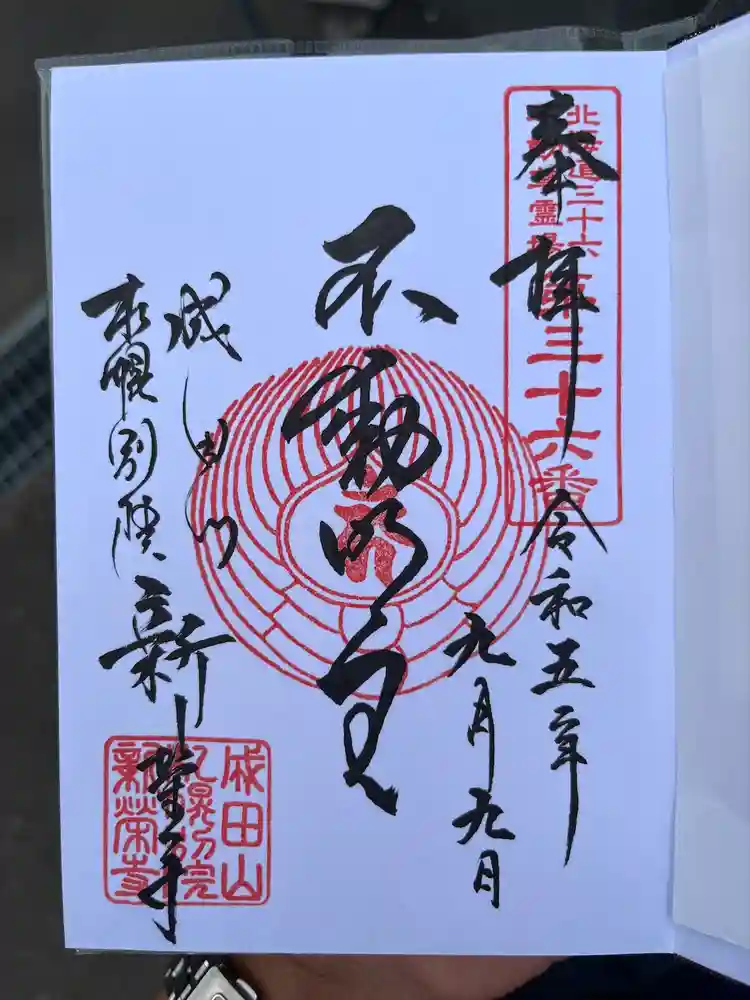 奉拝
北海道三十六
不動尊霊場
第三十六番
令和五年
九月九日
不動明王
成田山
札幌別院
新栄寺
成田山
札幌別院
新榮寺